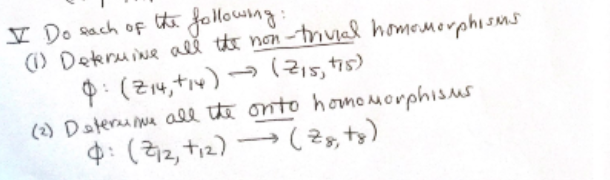 V Do each of the following:
(1) Determine all the non-trivial homomorphisms
φ: (Z14, +14) → (Z15, +15)
(2) Determine all the onto homomorphisms
φ: (Z12, +12) → (Z8, +8)